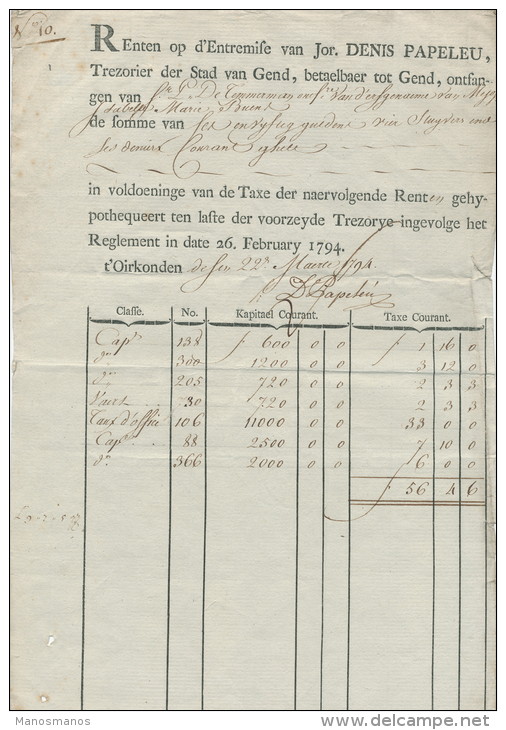 No 10.
REnten op d'Entremise van Jor. DENIS PAPELEU,
Trezorier der Stad van Gend, betaelbaer tot Gend, ontfan-
gen van De Timmerman van
Marie
de somme van ses en vyftig guldens vier Stuyvers ende
ses deniers Courant ghelt
in voldoeninge van de Taxe der naervolgende Renten gehy-
pothequeert ten laste der voorzeyde Trezorye ingevolge het
Reglement in date 26. February 1794.
t'Oirkonden desen 22 Maerte 1794.
D Papeleu
Classe. No. Kapitael Courant. Taxe Courant.
Cap 138 f 600 0 0 f 1 16 0
do 300 1200 0 0 3 12 0
do 205 720 0 0 2 3 3
Vaert 730 720 0 0 2 3 3
Taux d'office 106 11000 0 0 33 0 0
Cap 88 2500 0 0 7 10 0
do 366 2000 0 0 6 0 0
f 56 4 6
Manosmanos
www.delcampe.net